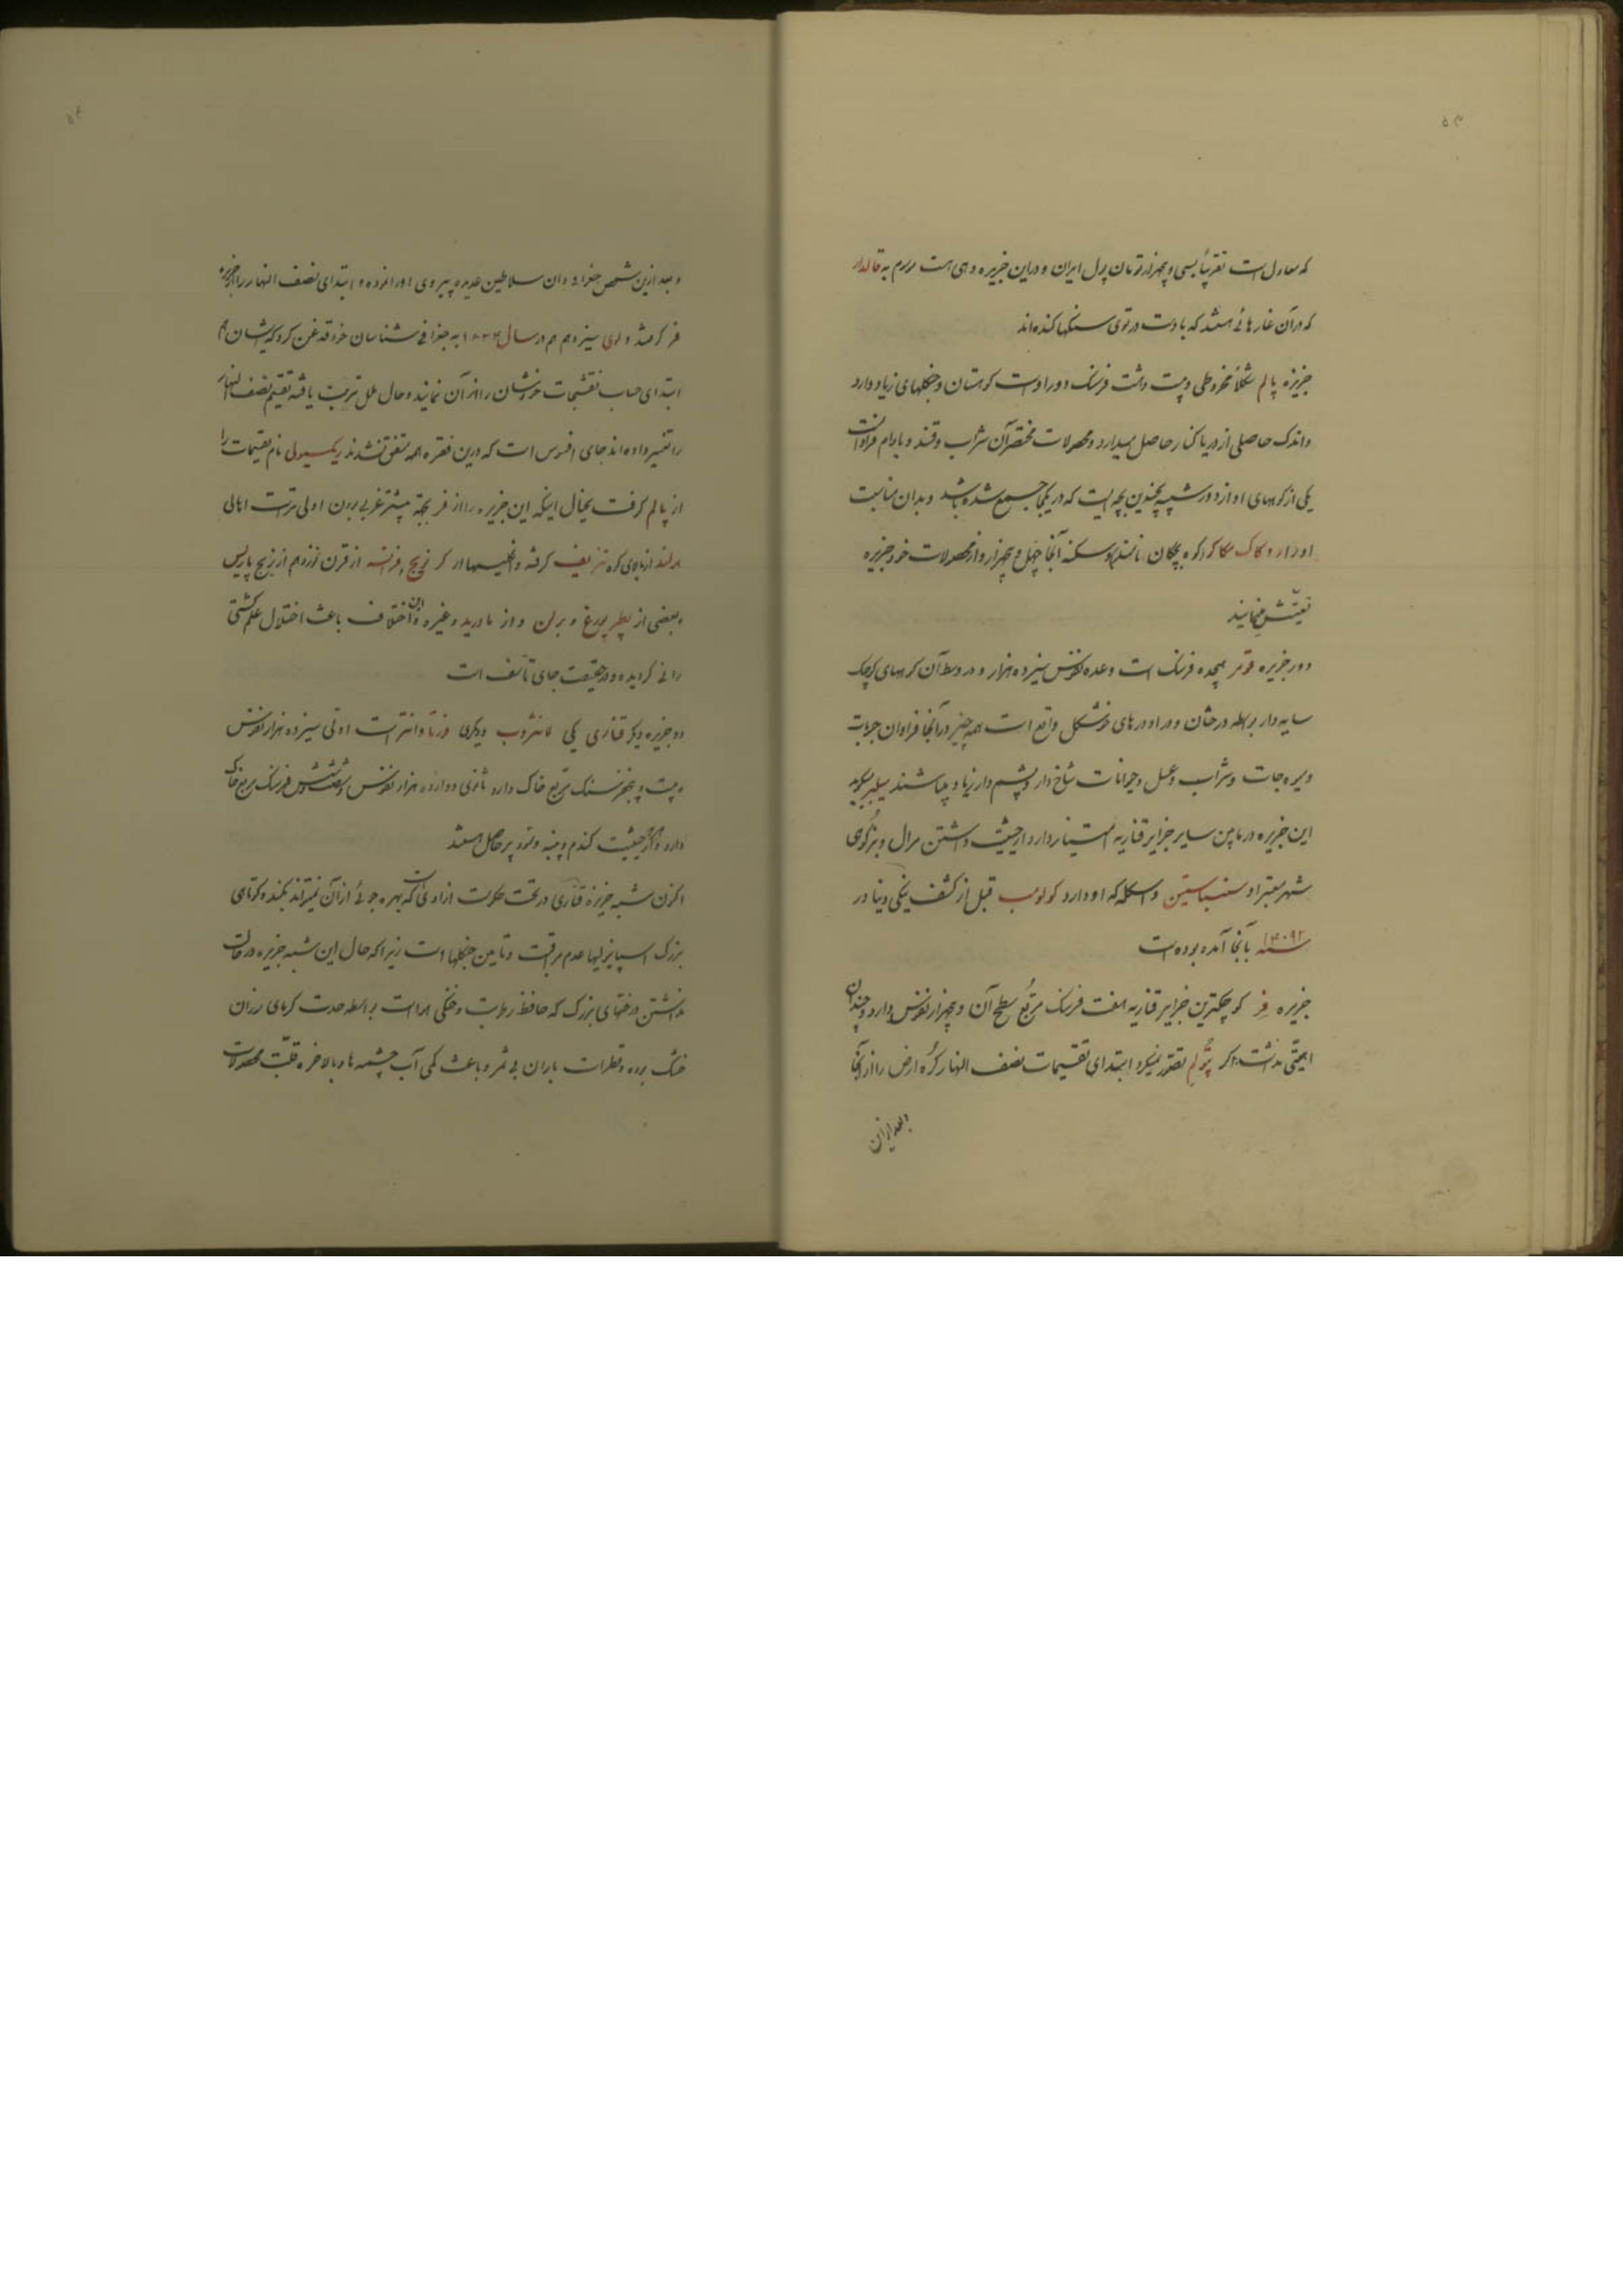 ۵۳
که معادل است تقریباً بسی و پنجهزار تومان پول ایران و در این جزیره دهی هست موسوم به قالدار
که در آن غارهائی هستند که با دست در توی سنگها کنده‌اند
جزیره پالم شکلاً مخروطی و بیست و هشت فرسنگ دور اوست کوهستان و جنگلهای زیاد دارد
و اندک حاصلی از دریا کنار حاصل میدارد و محصولات مختصر آن شراب و قند و بادام فراوانست
یکی از کوههای او از دور شبیه بچندین بچه ایست که در یکجا جمیع شده باشد و بدان مناسبت
او را کوه بچگان نامند سکنه آنجا چهل و پنجهزار و از محصولات خود جزیره
تعیش مینمایند
دور جزیره قومر هیجده فرسنگ است و عده نفوسش سیزده هزار و در وسط آن کوههای کوچک
سایه دار بواسطه درختان و در او دره‌های خوشگل واقع است همه چیز در آنجا فراوان حبوبات
و میوه جات و شراب و عسل و حیوانات شاخ دار و پشم دار زیاد میباشند
این جزیره در مابین سایر جزایر قناریه امتیاز دارد از حیثیت داشتن مرال و بزکوهی
شهر معتبر او سنسباستین و اسکله که او دارد کولومب قبل از کشف ینگی دنیا در
سنه ۱۴۰۹۲ بآنجا آمده بوده است
جزیره فر کوچکترین جزایر قناریه هفت فرسنگ مربع سطح آن و پنجهزار نفوس دارد و چندان
اهمیتی نداشت اگر پتولم تصور نمیکرد ابتدای تقسیمات نصف النهار کره ارض را از آنجا
و بعد از آن
۵۴
و بعد ازین شخص جغرافی دان سلاطین عدیده پیروی او را نموده و ابتدای نصف النهار را جزیره
فر گرفتند و لوی سیزدهم هم در سال ۱۶۳۴ به جغرافی شناسان خود قدغن کرد که ایشان هم
ابتدای حساب تقسیمات خودشان را از آن نمایند و حال ملل تربیت یافته تقسیم نصف النهار
را تغییر داده‌اند جای افسوس است که درین فقره همه متفق نشدند نام تقسیمات را
از پالم گرفت بخیال اینکه این جزیره را از فر بجهة بیشتر غربی بودن اولی‌تر است اهالی
هلند از بالای کوه تنریف گرفته و انگلیسها از گرنویچ و فرانسه از قرن نوزدهم از زیج پاریس
و بعضی از پطرپورغ و برلن و از مادرید و غیره و این اختلاف باعث اختلال علم کشتی
رانی گردیده و در حقیقت جای تأسف است
دو جزیره دیگر قناری یکی لانثروب و دیگری فرتاوانتر است اولی سیزده هزار نفوس
و بیست و پنجفرسنگ مربع خاک دارد ثانوی دوازده هزار نفوس و شصت و شش فرسنگ مربع خاک
دارد و از حیثیت گندم و پنبه و نخود پر حاصل هستند
اکنون شبه جزیره قناری در تحت حکومت آزادی است که بهره جوئی از آن نمیتوانند بکنند و کوتاهی
بزرگ اسپانیولیها عدم مراقبت و تأمین جنگلها است زیرا که حال این شبه جزیره در حالت
نداشتن درختهای بزرگ که حافظ رطوبت و خنکی هوا است بواسطه حدت گرمای سوزان
خشک بوده و قطرات باران بی ثمر و باعث کمی آب چشمه‌ها و بالاخره قلت محصولات